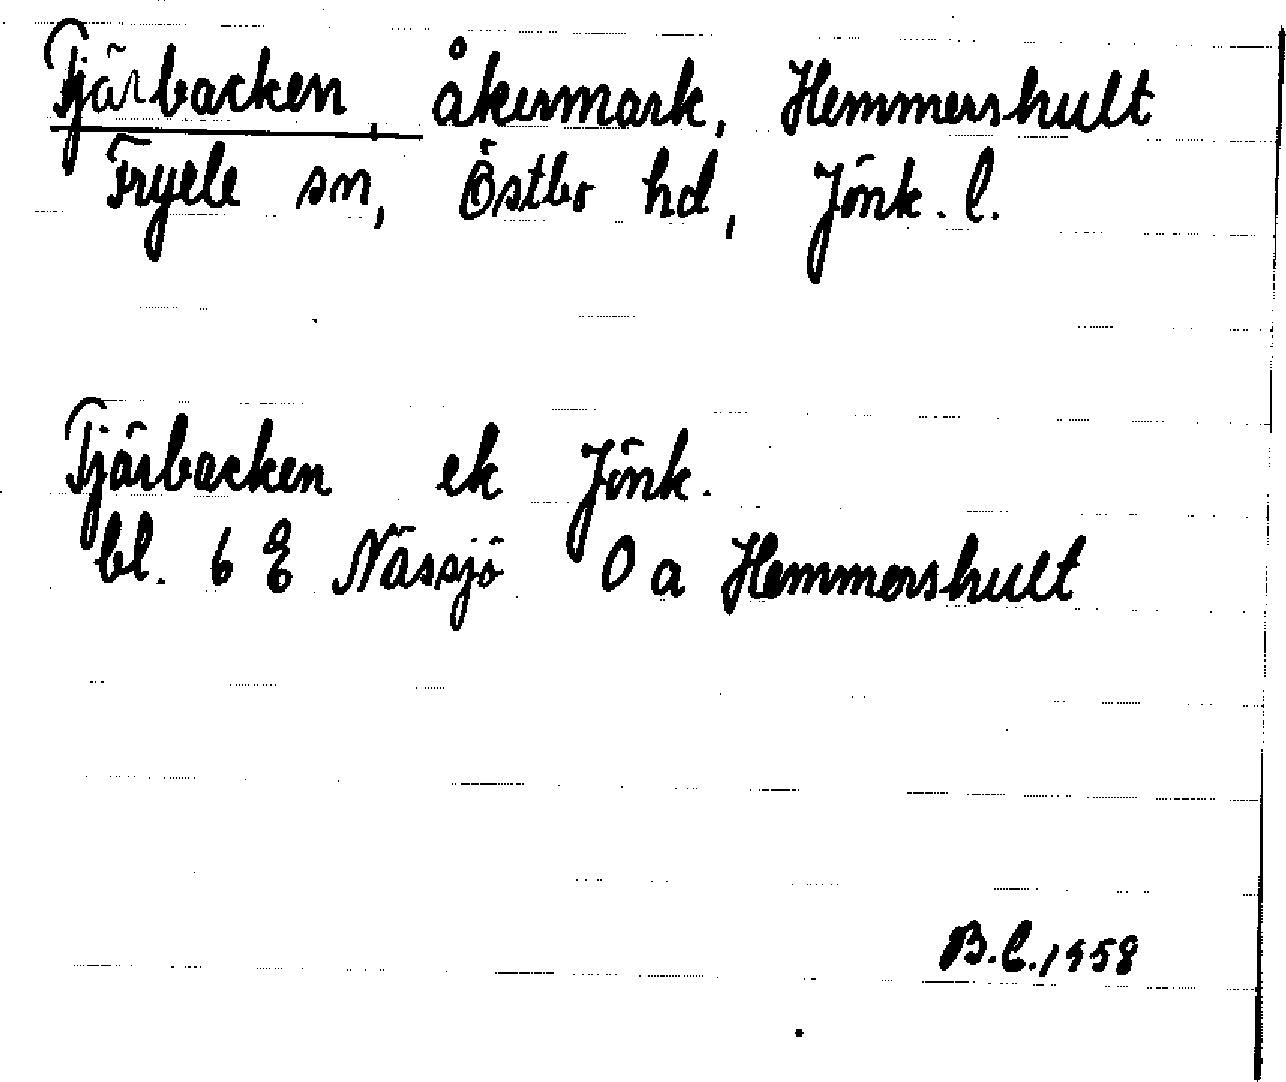 Tjärbacken åkermark, Hemmershult
Fryele sn, Östbo hd, Jönk. l.
Tjärbacken ek Jönk.
bl. 6 E Nässjö 0 a Hemmershult
B.C. 1958